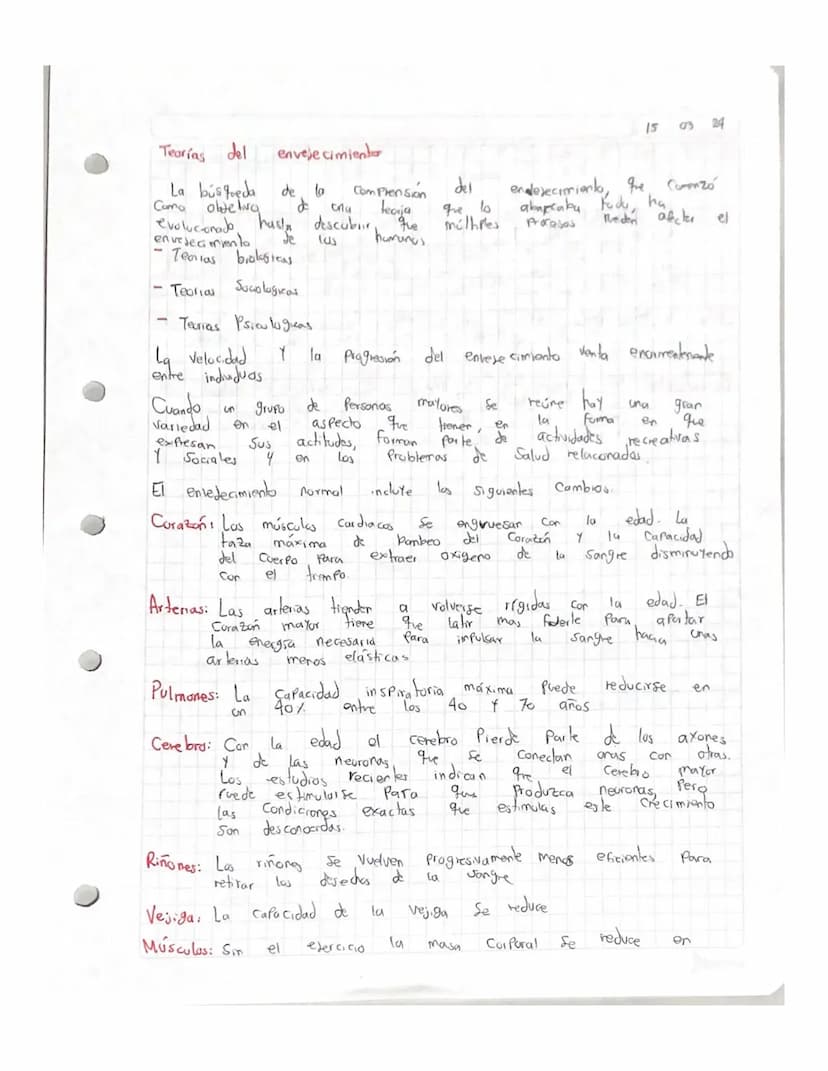 15 03 24
Teorías del envejecimiento
La búsqueda de la comprensión del envejecimiento, que comenzó
como objetivo de una teoría que lo abarcaba todo, ha
evolucionado hasta descubrir que múltiples procesos pueden afectar el
envejecimiento de los humanos
- Teorias biologicas
- Teorias Sociologicas
- Teorias Psicologicas
La velocidad y la Progresión del envejecimiento
entre individuos
Cuando un grupo de Personas mayores se reúne hay una gran
variedad en el aspecto que tienen, en la forma en que
expresan sus actitudes, forman parte de actividades recreativas
y Sociales y en los Problemas de Salud relacionados.
El envejecimiento normal incluye los siguientes Cambios.
Corazón: Los músculos cardiacos se engruesan con la edad. La
taza máxima de bombeo del Corazón y la Capacidad
del Cuerpo Para extraer oxígeno de la sangre disminuyendo
con el tiempo.
Arterias: Las arterias tienden a volverse rígidas con la edad. El
Corazón mayor tiene que latir mas fuerte Para aportar
la energía necesaria Para impulsar la sangre hacia unas
arterias menos elásticas
Pulmones: La Capacidad inspiratoria máxima Puede reducirse en
un 40% entre los 40 y 70 años
Cerebro: Con la edad el cerebro Pierde Parte de los axones
y de las neuronas que se Conectan unas con otras.
Los estudios recientes indican que el Cerebro mayor
Puede estimularse Para que Produzca neuronas, Pero
las Condiciones exactas que estimulas este Crecimiento
son desconocidas.
Riñones: Los riñones se vuelven Progresivamente menos eficientes Para
retirar los desechos de la sangre
Vejiga: La capacidad de la vejiga se reduce
Músculos: Sin el ejercicio la masa Corporal se reduce en